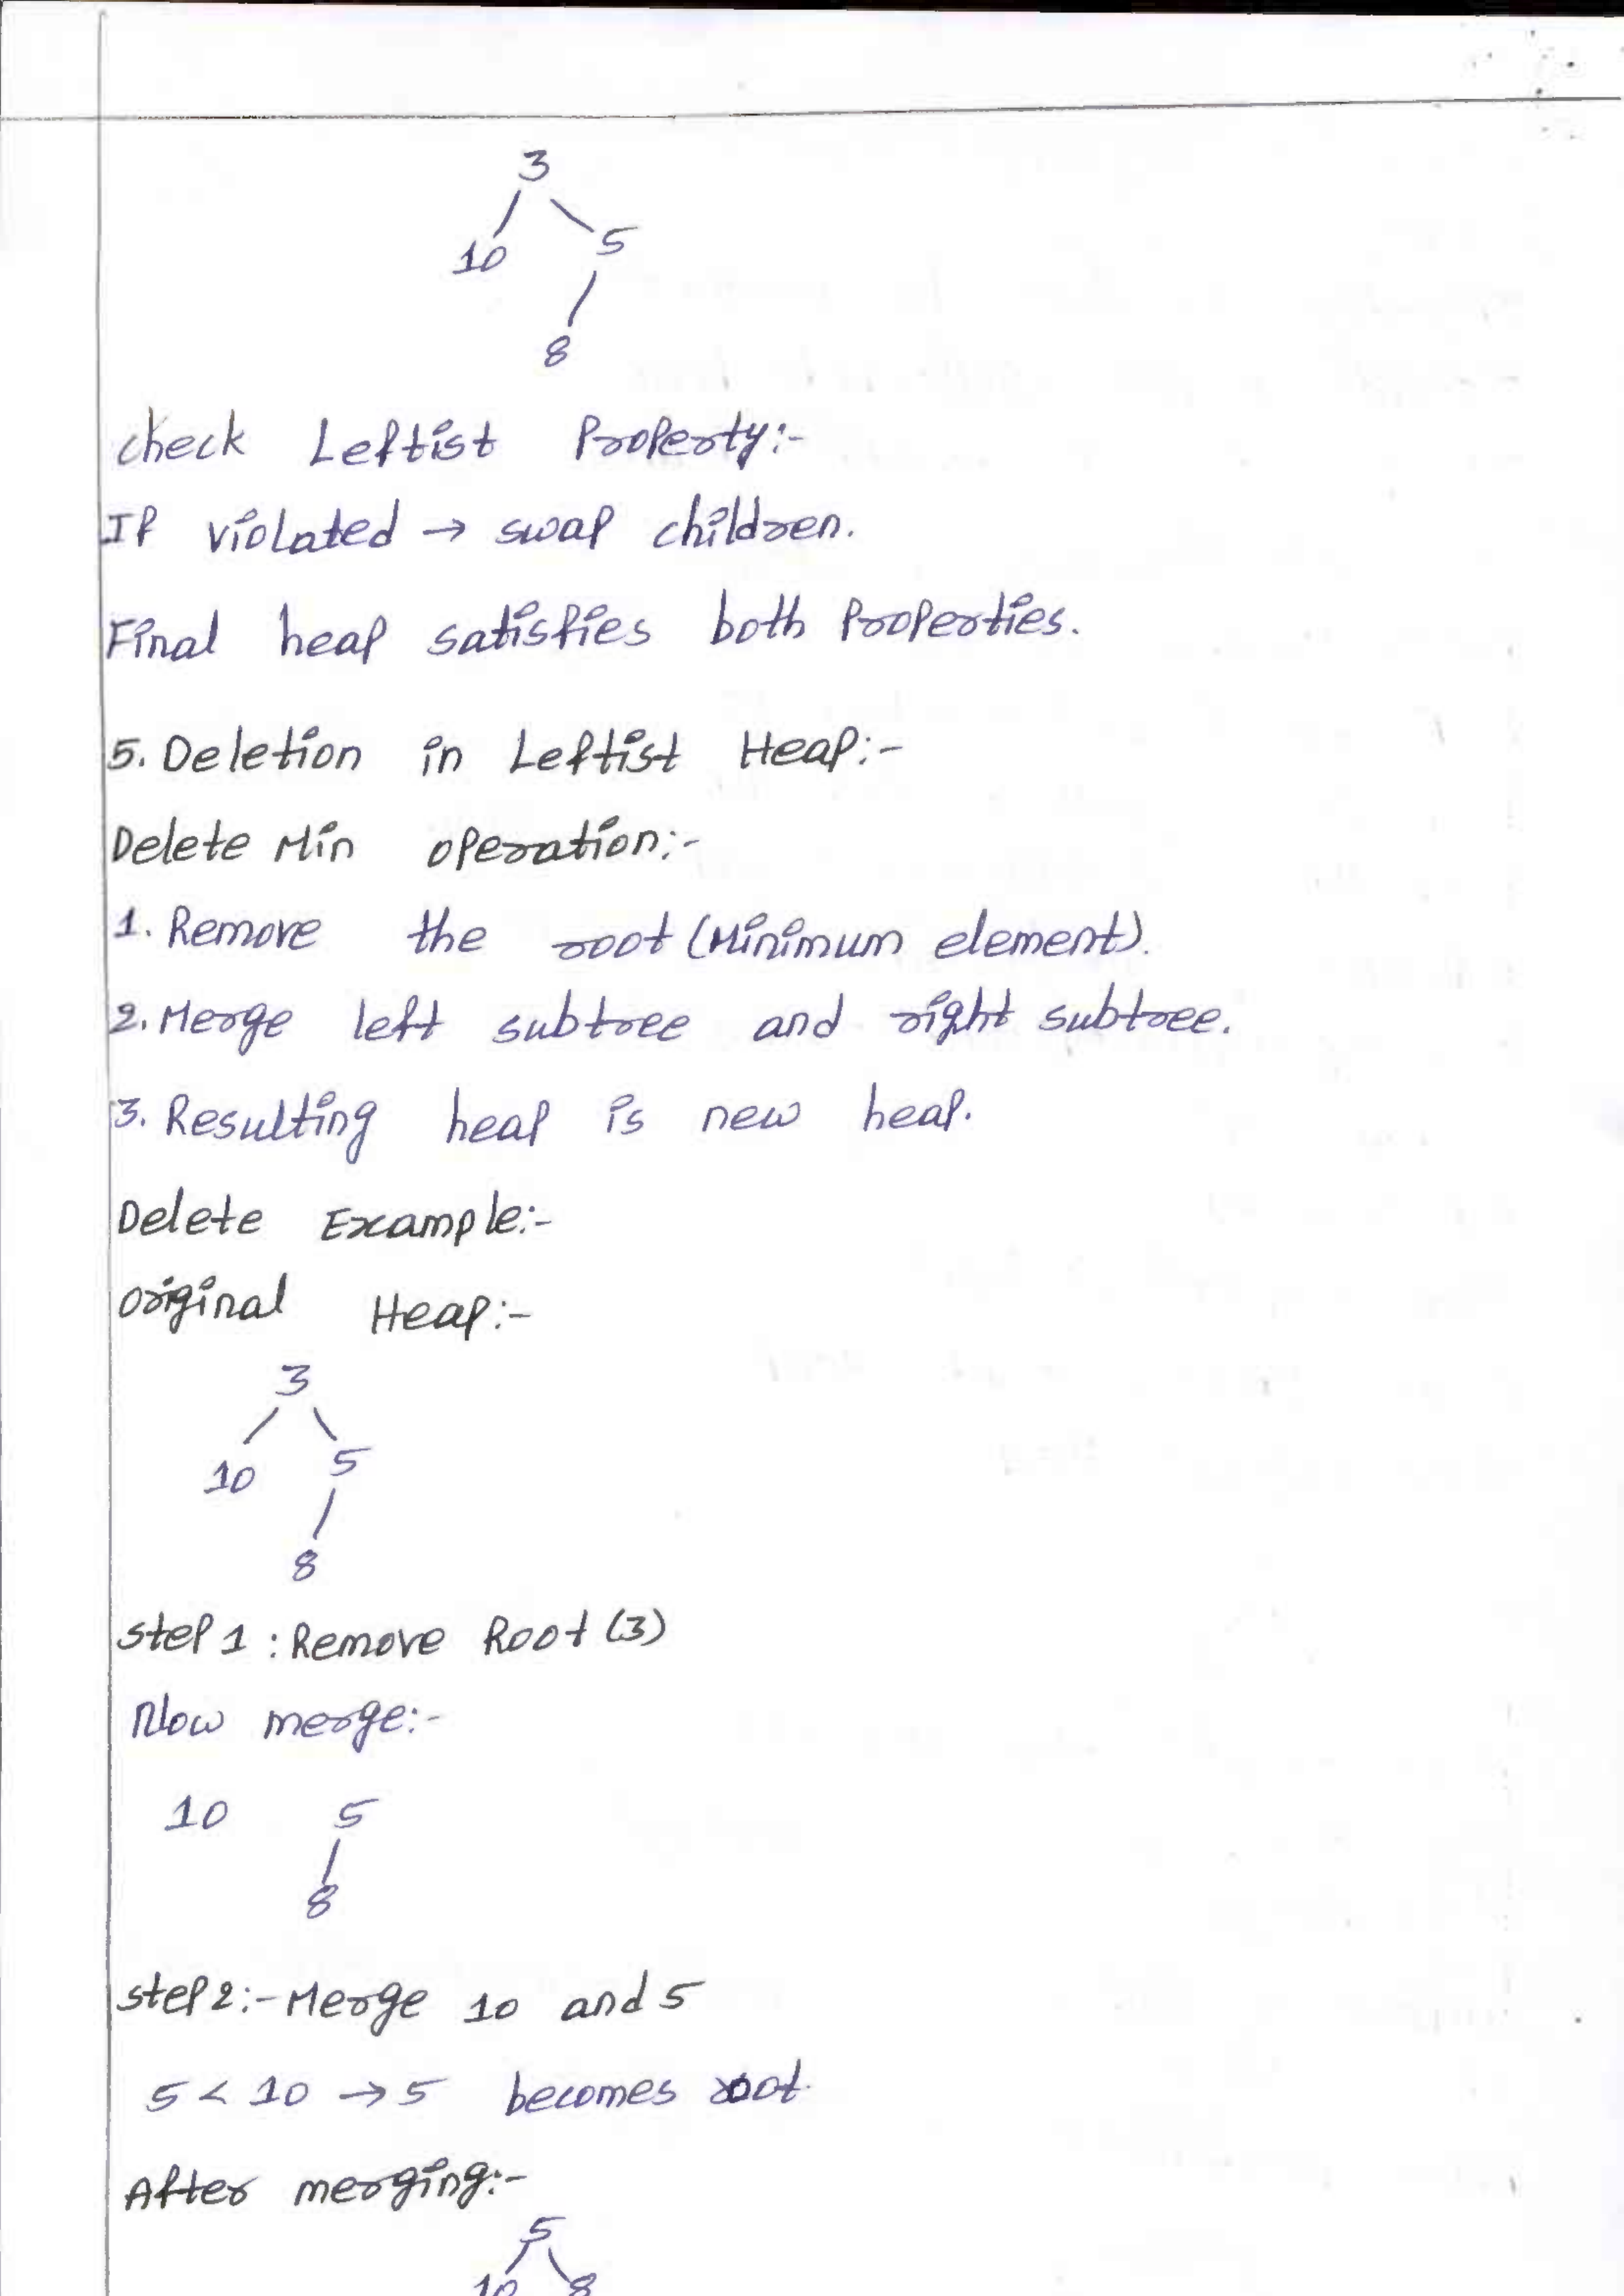 3
10 5
8
check Leftist Property:-
If violated → swap children.
Final heap satisfies both properties.
5. Deletion in Leftist Heap:-
Delete Min operation:-
1. Remove the root (Minimum element).
2. Merge left subtree and right subtree.
3. Resulting heap is new heap.
Delete Example:-
Original Heap:-
3
10 5
8
step 1 : Remove Root (3)
Now merge:-
10 5
8
step 2:- Merge 10 and 5
5 < 10 → 5 becomes root.
After merging:-
5
10 8